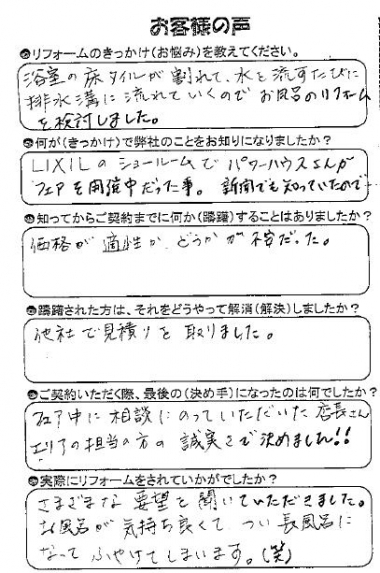 お客様の声
●リフォームのきっかけ(お悩み)を教えてください。
浴室の床タイルが割れて、水を流すたびに
排水溝に流れていくのでお風呂のリフォーム
を検討しました。
●何が(きっかけ)で弊社のことをお知りになりましたか?
LIXILのショールームでパワーハウスさんが
フェアを開催中だった事。新聞でも知っていたので
●知ってからご契約までに何か(躊躇)することはありましたか?
価格が適性かどうかが不安だった。
●躊躇された方は、それをどうやって解消(解決)しましたか?
他社で見積りを取りました。
●ご契約いただく際、最後の(決め手)になったのは何でしたか?
フェア中に相談にのっていただいた店長さん
エリアの担当の方の誠実さで決めました!!
●実際にリフォームをされていかがでしたか?
さまざまな要望を聞いていただきました。
お風呂が気持ち良くて、つい長風呂に
なってふやけてしまいます。(笑)